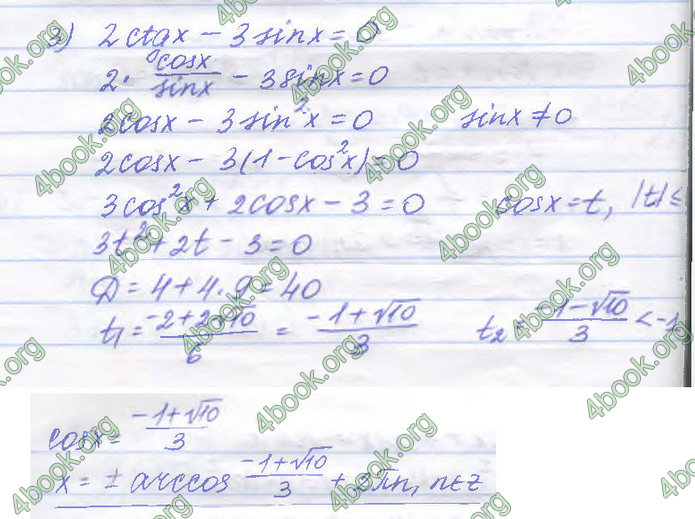 3) 2 ctg x - 3 sin x = 0
2 · cos x / sin x - 3 sin x = 0
2 cos x - 3 sin² x = 0 sin x ≠ 0
2 cos x - 3(1 - cos² x) = 0
3 cos² x + 2 cos x - 3 = 0 cos x = t, |t| ≤
3t² + 2t - 3 = 0
D = 4 + 4 · 9 = 40
t₁ = (-2 + 2√10) / 6 = (-1 + √10) / 3 t₂ = (-1 - √10) / 3 < -1
cos x = (-1 + √10) / 3
x = ± arccos (-1 + √10) / 3 + 2πn, n ∈ Z
4book.org